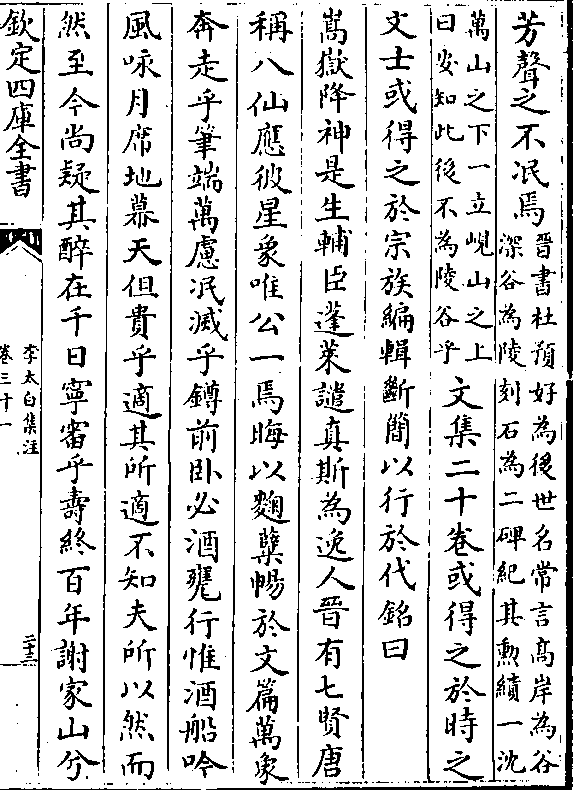 芳聲之不泯焉晉書杜預好為後世名常言髙岸為谷
深谷為陵刻石為二碑紀其勲績一沈
萬山之下一立峴山之上
曰安知此後不為陵谷乎文集二十卷或得之於時之
文士或得之於宗族編輯斷簡以行於代銘曰
嵩嶽降神是生輔臣蓬萊譴真斯為逸人晉有七賢唐
稱八仙應彼星象唯公一焉晦以麴糵暢於文篇萬象
奔走乎筆端萬慮泯滅乎罇前卧必酒甕行惟酒船吟
風咏月席地幕天但貴乎適其所適不知夫所以然而
然至今尚疑其醉在千日寧審乎壽終百年謝家山兮
欽定四庫全書
李太白集注
卷三十一
二十三